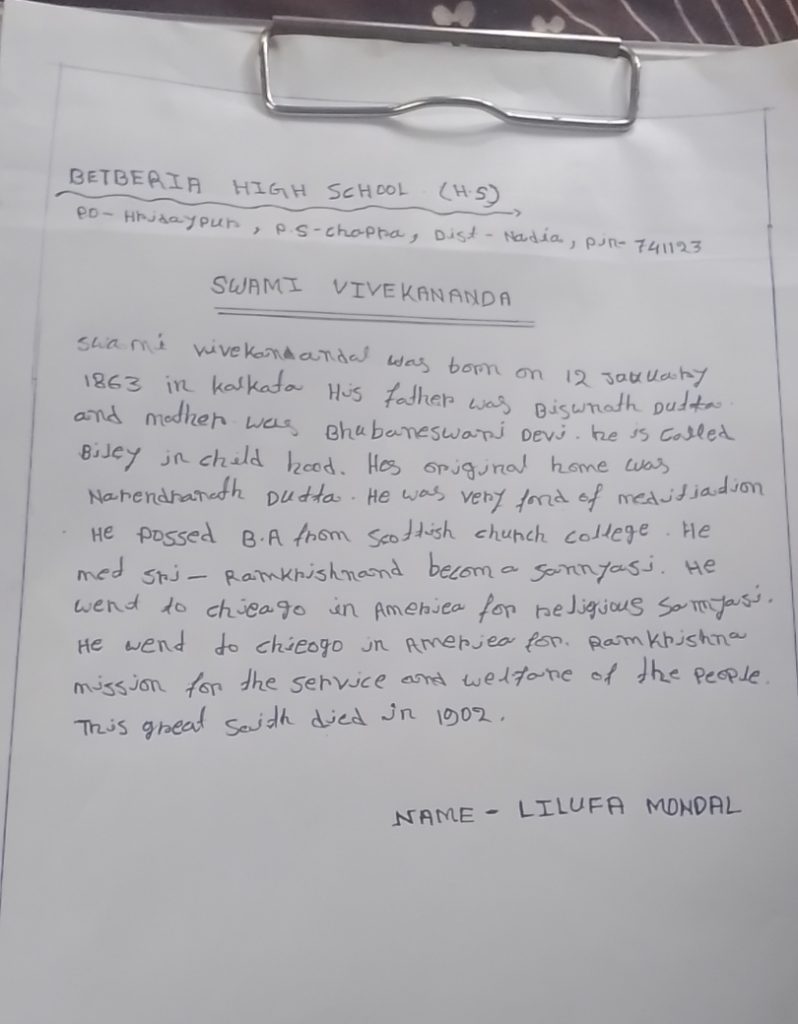 BETBERIA HIGH SCHOOL (H.S)
PO - Hridaypur, P.S - chapra, Dist - Nadia, pin - 741123
SWAMI VIVEKANANDA
was born on 12
1863 in kolkata His father was Biswnath Dutta
and mother was Bhubaneswari Devi. he is called
Biley in child hood. Hes original home was
Narendranath Dutta. He was very fond of
He possed B.A from Scottish church college. He
med sri - Ramkrishnand becom a sannyasi. He
wend to chicago in America for religious
He wend to chicogo in America for. Ramkhishna
mission for the service and welfare of the people.
This great died in 1902.
NAME - LILUFA MONDAL